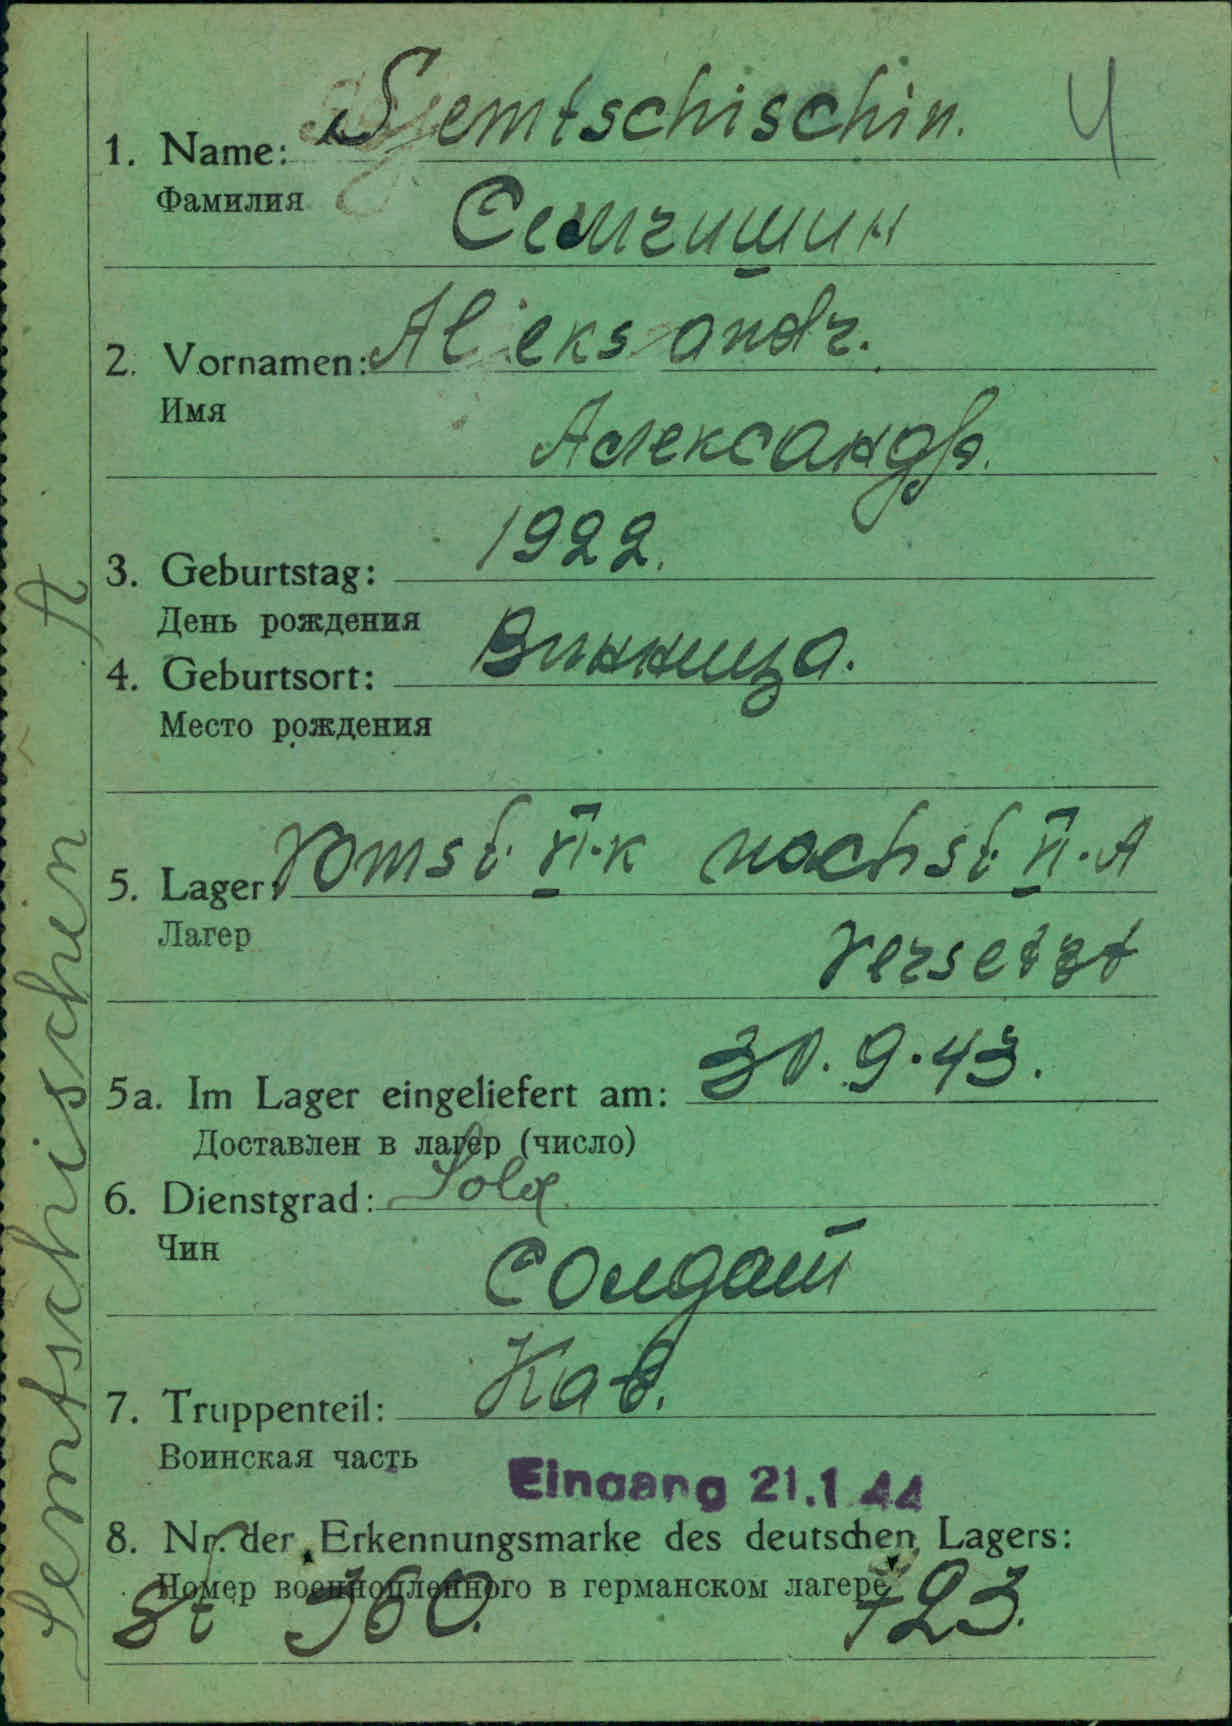 1. Name: Sjemtschischin. Ч
Фамилия
Семчишин
2. Vornamen: Aleksandr.
Имя
Александр.
3. Geburtstag: 1922.
День рождения
4. Geburtsort: Винница.
Место рождения
5. Lager: Vom St. VI·K nach St. VI·A
Лагер
versetzt
5a. Im Lager eingeliefert am: 30.9.43.
Доставлен в лагер (число)
6. Dienstgrad: Sold
Чин
Солдат
7. Truppenteil: Кав.
Воинская часть
Eingang 21.1.44
8. Nr. der Erkennungsmarke des deutschen Lagers:
Номер военнопленного в германском лагере
St 360. 723.
Semtschischin A